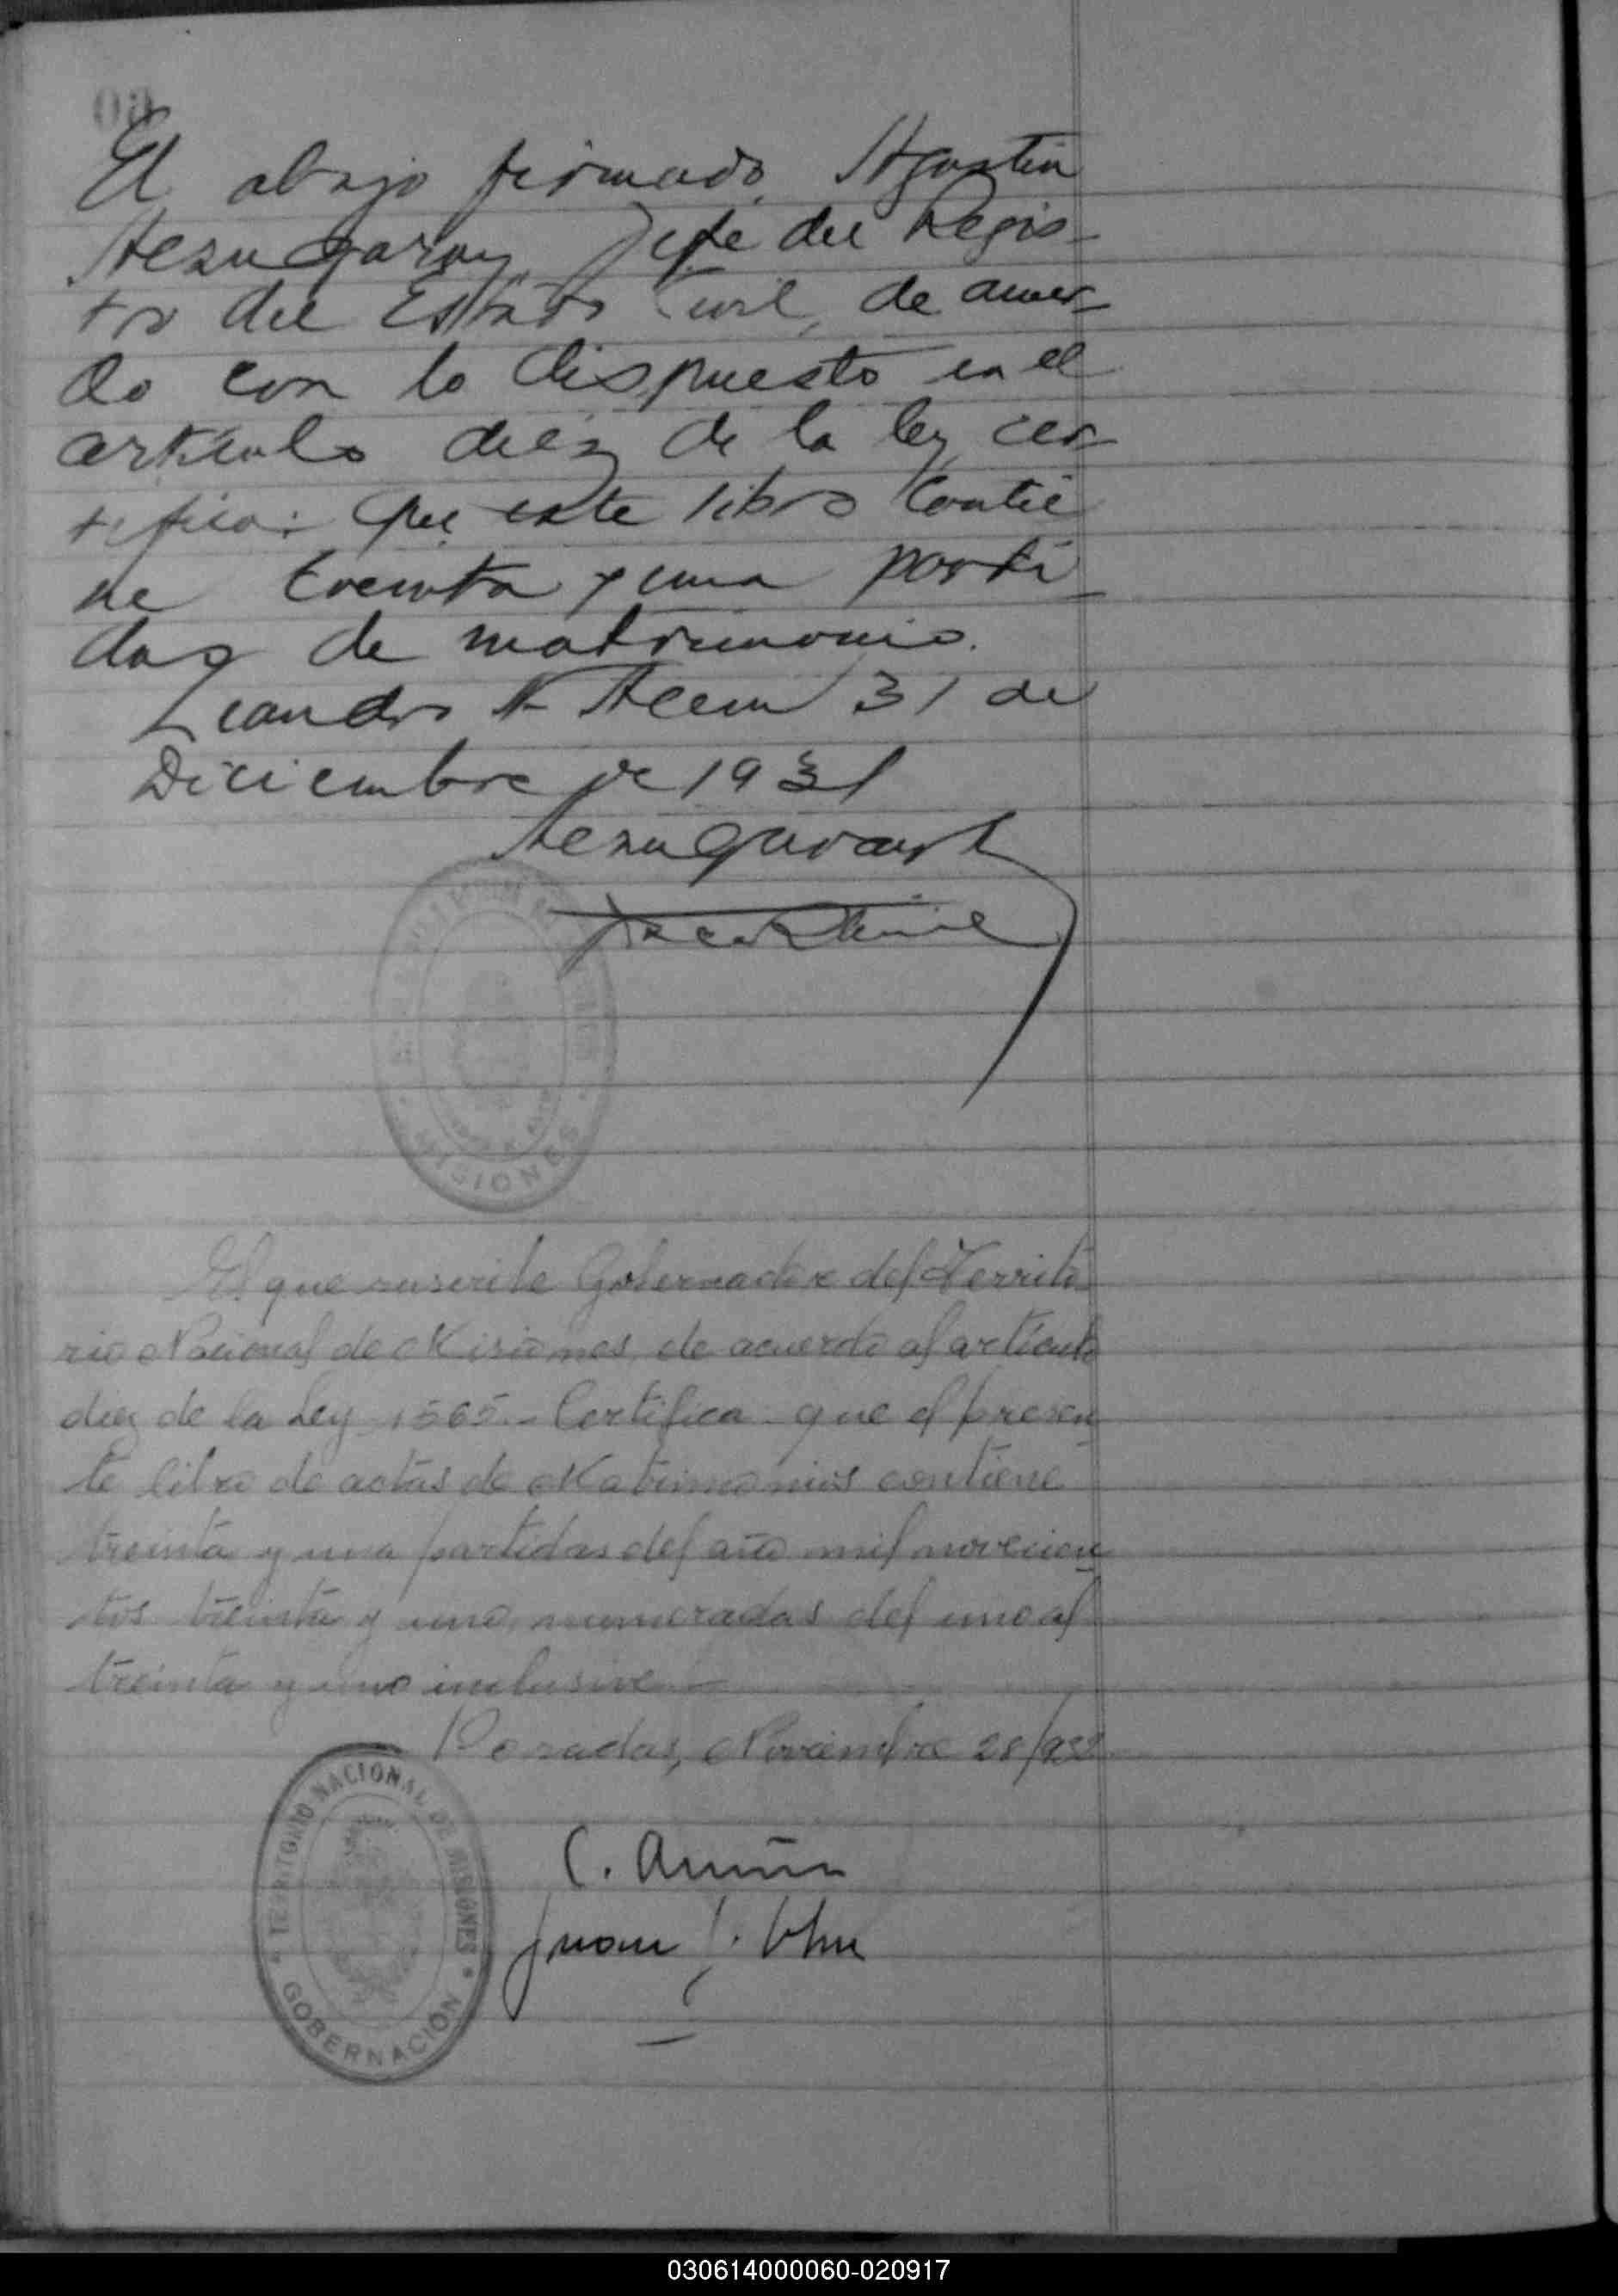 El abajo firmado, Agustin
Jefe del Regis-
tro del Estado Civil, de acuer-
do con lo dispuesto en el
articulo diez de la ley, cer-
tifica: Que este libro Contie
ne treinta y una parti-
das de matrimonio.
Leandro N. Alem 31 de
Diciembre de 1931
MISIONES
El que suscribe Gobernador del Territo-
rio Nacional de Misiones, de acuerdo al artículo
diez de la Ley 1565.- Certifica que el presen
te libro de actas de Matrimonios contiene
treinta y una partidas del año mil novecien
tos treinta y uno, numeradas del uno al
treinta y uno inclusive.-
Posadas, Noviembre 28/932
TERRITORIO NACIONAL DE MISIONES
GOBERNACIÓN
C. Acuña
Juan
030614000060-020917